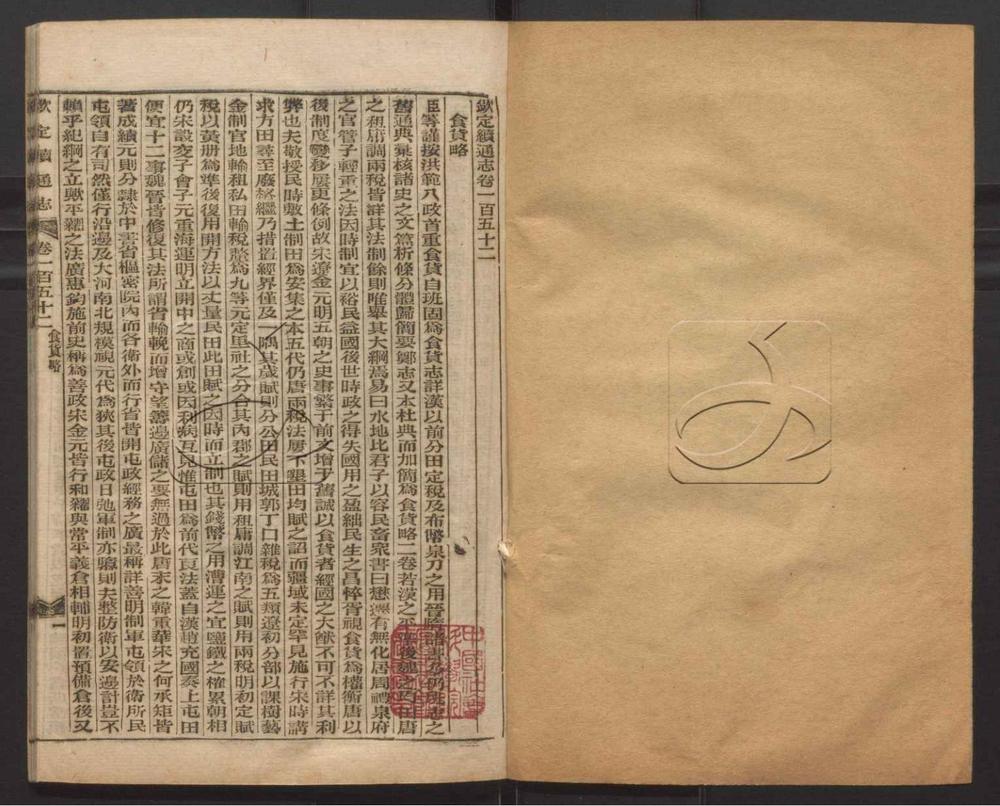 欽定續通志卷一百五十二
食貨略
臣等謹按洪範八政首重食貨自班固為食貨志詳漢以前分田定稅及布幣泉刀之用晉隋諸書志之
舊通典彙核諸史之文篇析條分體歸簡要鄭志又本杜典而加簡為食貨略二卷若漢之後魏之田唐
之租庸調兩稅皆詳其法制餘則唯舉其大綱焉易曰水地比君子以容民畜衆書曰懋遷有無化居周禮泉府
之官管子輕重之法因時制宜以裕民益國後世時政之得失國用之盈絀民生之昌悴胥視食貨為權衡唐以
後制度變移屢更條例故宋遼金元明五朝之史事繁于前文增于舊誠以食貨者經國之大猷不可不詳其利
弊也夫敬授民時敷土制田為安集之本五代仍唐兩稅法屢下墾田均賦之詔而疆域未定罕見施行宋時講
求方田尋至廢格繼乃措置經界僅及一隅其歲賦則分公田民田城郭丁口雜稅為五類遼初分部以課樹藝
金制官地輸租私田輸稅釐為九等元定里社之分合其內郡之賦則用租庸調江南之賦則用兩稅明初定賦
稅以黃册為準後復用開方法以丈量民田此田賦之因時而立制也其錢幣之用漕運之宜鹽鐵之榷累朝相
仍宋設交子會子元重海運明立開中之商或創或因利病互見惟屯田為前代良法蓋自漢趙充國奏上屯田
便宜十二事魏晉皆修復其法所謂省輸輓而增守望籌邊廣儲之要無過於此唐末之韓重華宋之何承矩皆
著成績元則分隸於中書省樞密院內而各衛外而行省皆開屯政經務之廣最稱詳善明制軍屯領於衛所民
屯領自有司然僅行沿邊及大河南北規模視元代為狹其後屯政日弛軍制亦隳則夫整防衛以安邊計豈不
賴乎紀綱之立歟平糶之法廣惠鈞施前史稱為善政宋金元皆行和糴與常平義倉相輔明初置預備倉後又
欽定續通志
卷一百五十二
食貨略
一